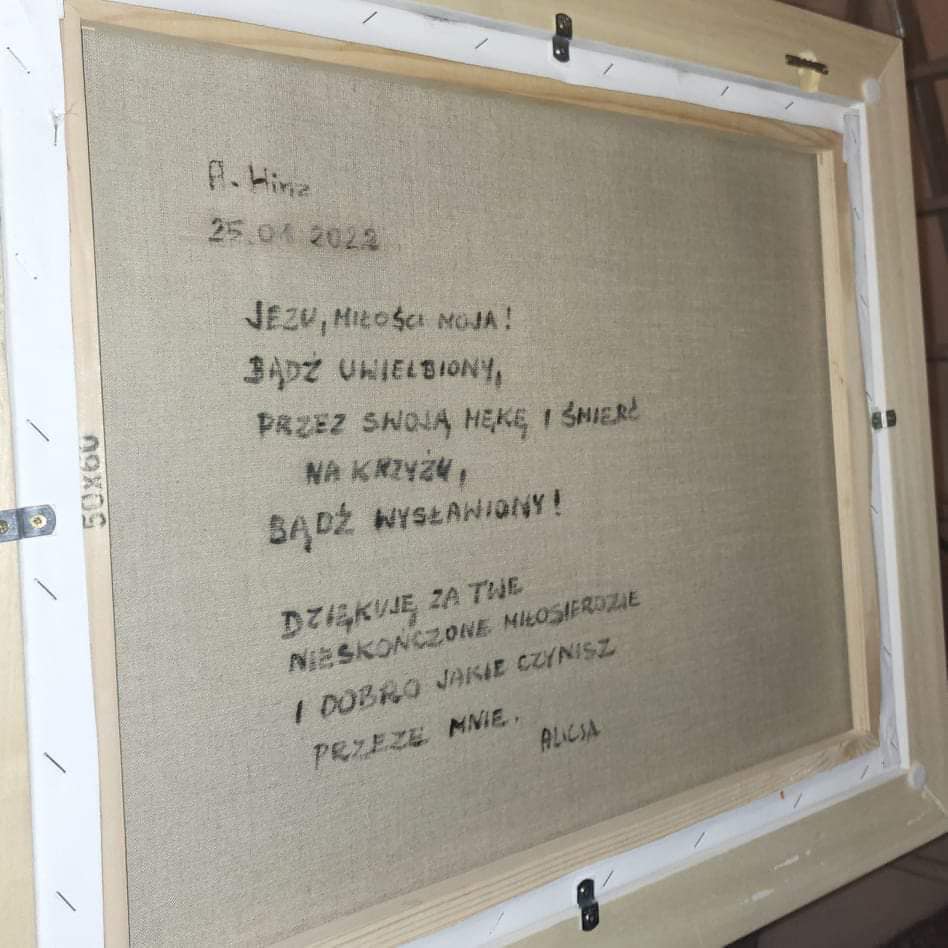 A. Hinz
25.01 2022
JEZU, MIŁOŚCI MOJA!
BĄDŹ UWIELBIONY,
PRZEZ SWOJĄ MĘKĘ I ŚMIERĆ
NA KRZYŻU,
BĄDŹ WYSŁAWIONY!
DZIĘKUJĘ ZA TWE
NIESKOŃCZONE MIŁOSIERDZIE
I DOBRO JAKIE CZYNISZ
PRZEZE MNIE.
ALICJA
50x60